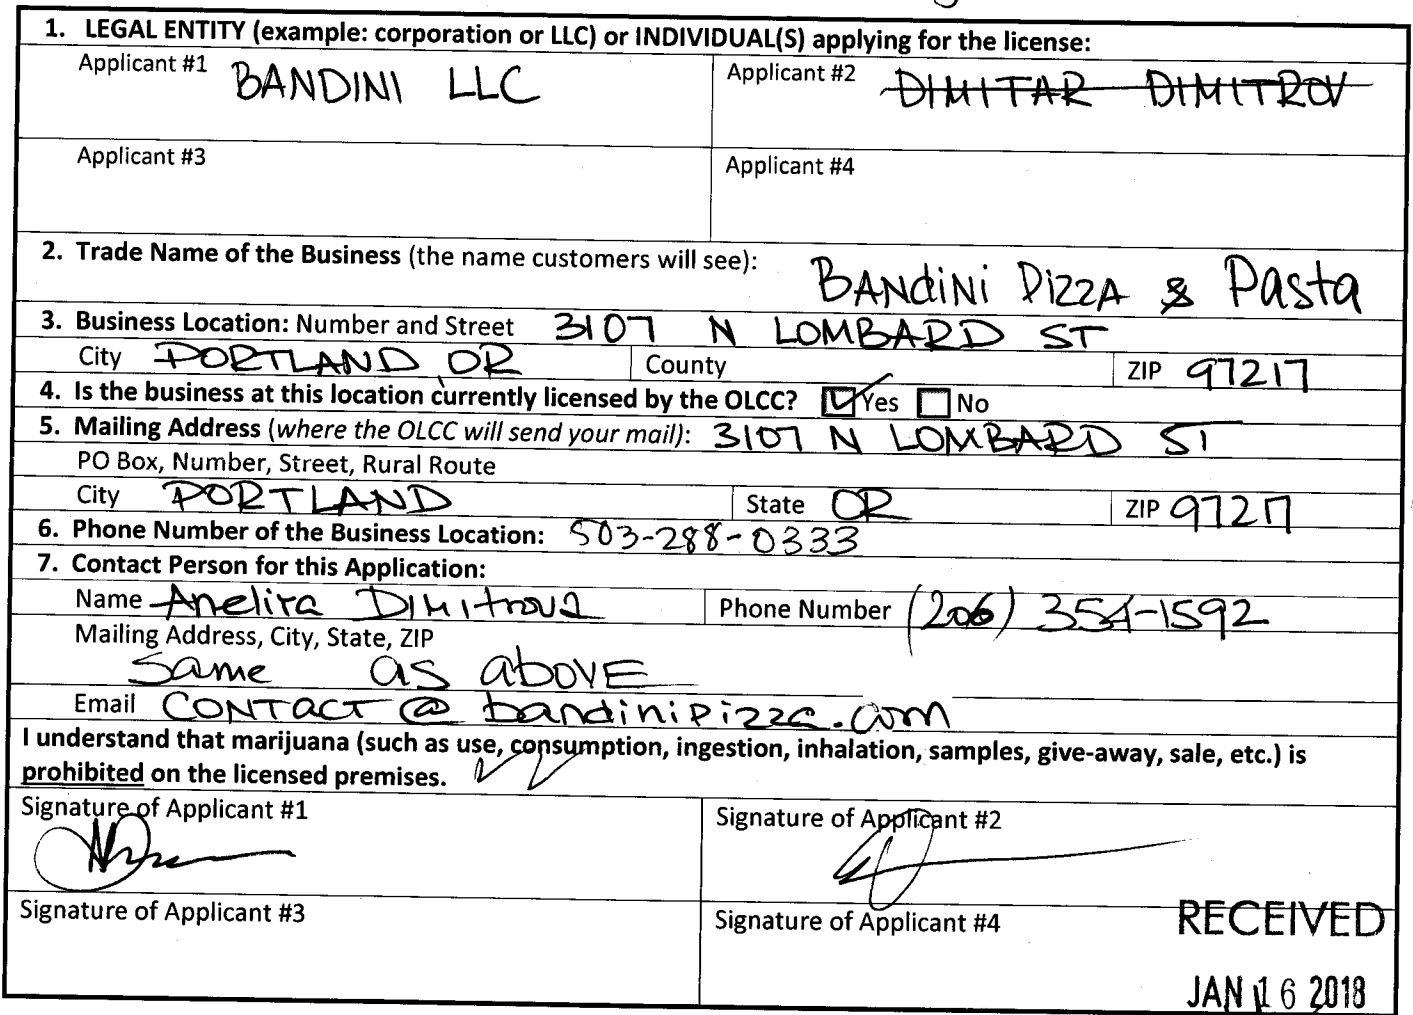 1. LEGAL ENTITY (example: corporation or LLC) or INDIVIDUAL(S) applying for the license:
Applicant #1 BANDINI LLC
Applicant #2 DIMITAR DIMITROV
Applicant #3
Applicant #4
2. Trade Name of the Business (the name customers will see): BANdiNi PizzA & Pasta
3. Business Location: Number and Street 3107 N LOMBARD ST
City PORTLAND, OR County ZIP 97217
4. Is the business at this location currently licensed by the OLCC? Yes No
5. Mailing Address (where the OLCC will send your mail): 3107 N LOMBARD ST
PO Box, Number, Street, Rural Route
City PORTLAND State OR ZIP 97217
6. Phone Number of the Business Location: 503-288-0333
7. Contact Person for this Application:
Name Dimitrova Phone Number (206) 354-1592
Mailing Address, City, State, ZIP
Same as abovE
Email CONTACT@bandinipizza.com
I understand that marijuana (such as use, consumption, ingestion, inhalation, samples, give-away, sale, etc.) is
prohibited on the licensed premises.
Signature of Applicant #1
Signature of Applicant #2
Signature of Applicant #3
Signature of Applicant #4
RECEIVED
JAN 16 2018